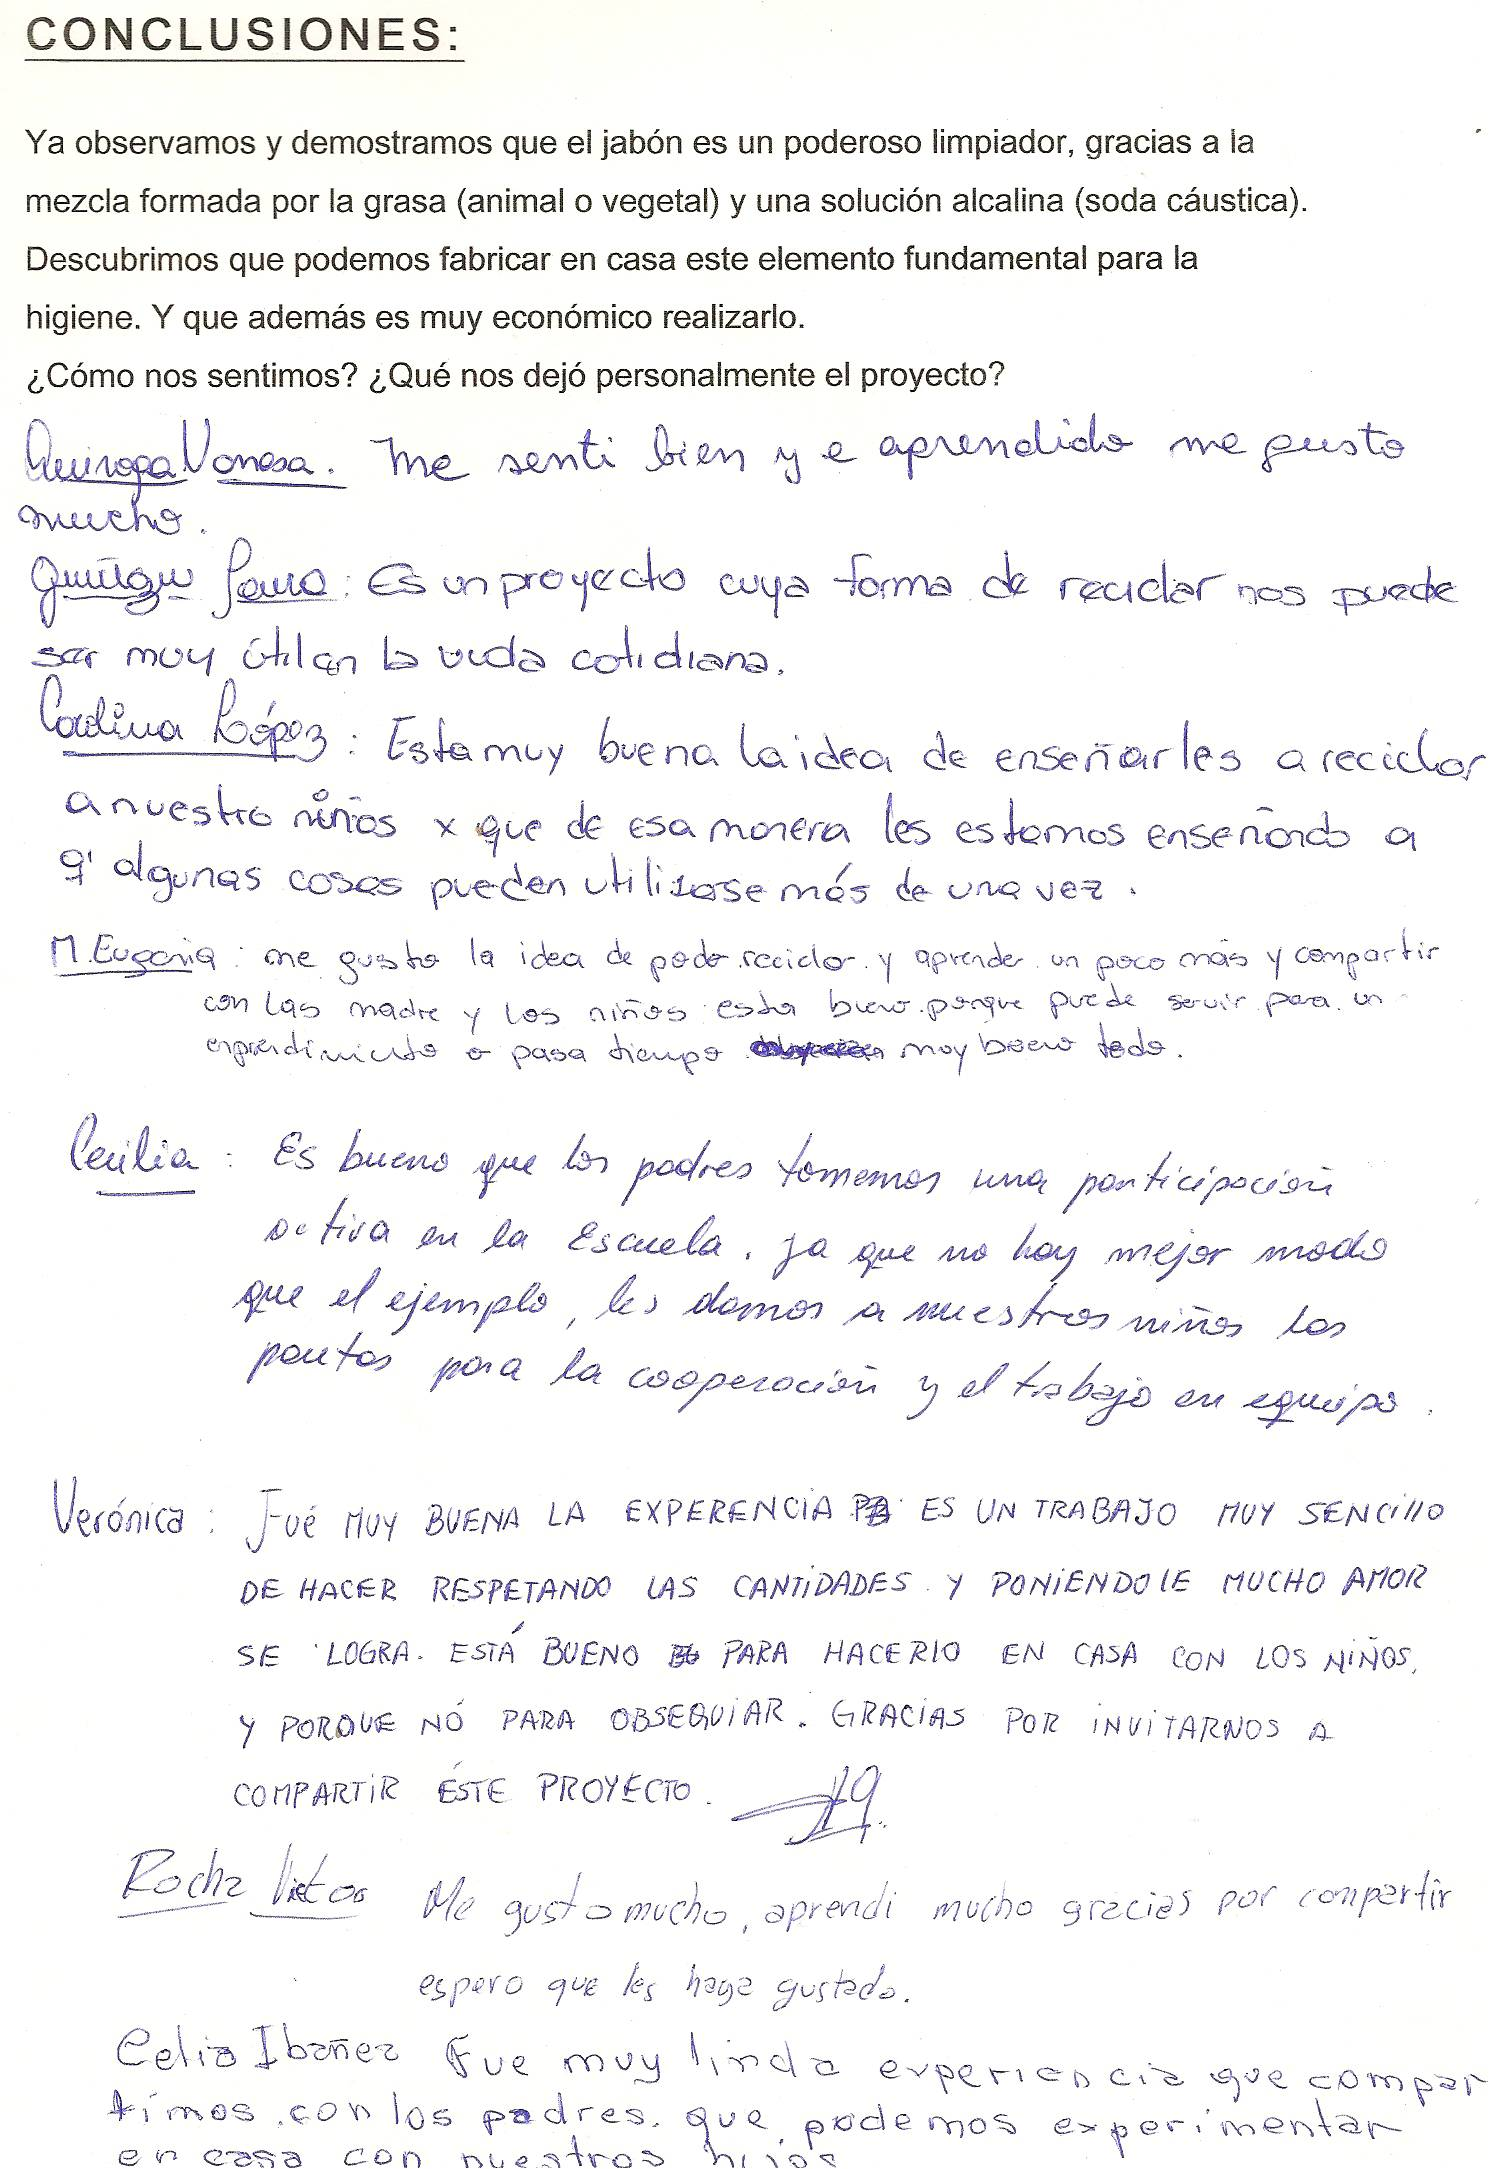 CONCLUSIONES:
Ya observamos y demostramos que el jabón es un poderoso limpiador, gracias a la
mezcla formada por la grasa (animal o vegetal) y una solución alcalina (soda cáustica).
Descubrimos que podemos fabricar en casa este elemento fundamental para la
higiene. Y que además es muy económico realizarlo.
¿Cómo nos sentimos? ¿Qué nos dejó personalmente el proyecto?
Quiroga Vanesa. me senti bien y e aprendido me gusto
mucho.
: Es un proyecto cuya forma de reciclar nos puede
ser muy útil en la vida cotidiana.
López: Esta muy buena la idea de enseñarles a reciclar
a nuestro niños x que de esa manera les estamos enseñando a
q' algunas cosas pueden utilizarse más de una vez.
M. Eugenia: me gusto la idea de poder reciclar y aprender un poco más y compartir
con las madre y los niños esta bueno porque puede servir para un
enprendimiento o pasa tiempo muy bueno todo.
Cecilia: Es bueno que los padres tomemos una participación
activa en la Escuela. Ya que no hay mejor modo
que el ejemplo, les damos a nuestros niños las
pautas para la cooperación y el trabajo en equipo.
Verónica: Fué MUY BUENA LA EXPERENCIA ES UN TRABAJO MUY SENCIllO
DE HACER RESPETANDO LAS CANTIDADES Y PONIENDOLE MUCHO AMOR
SE LOGRA. ESTÁ BUENO PARA HACERLO EN CASA CON LOS NIÑOS,
Y PORQUE NÓ PARA OBSEQUIAR. GRACIAS POR INVITARNOS A
COMPARTIR ÉSTE PROYECTO.
Rocha Victor Me gusto mucho, aprendi mucho gracias por compartir
espero que les haya gustado.
Celia Ibañez Fue muy linda experiencia que compar
timos con los padres. que podemos experimentar
en casa con nuestros hijos